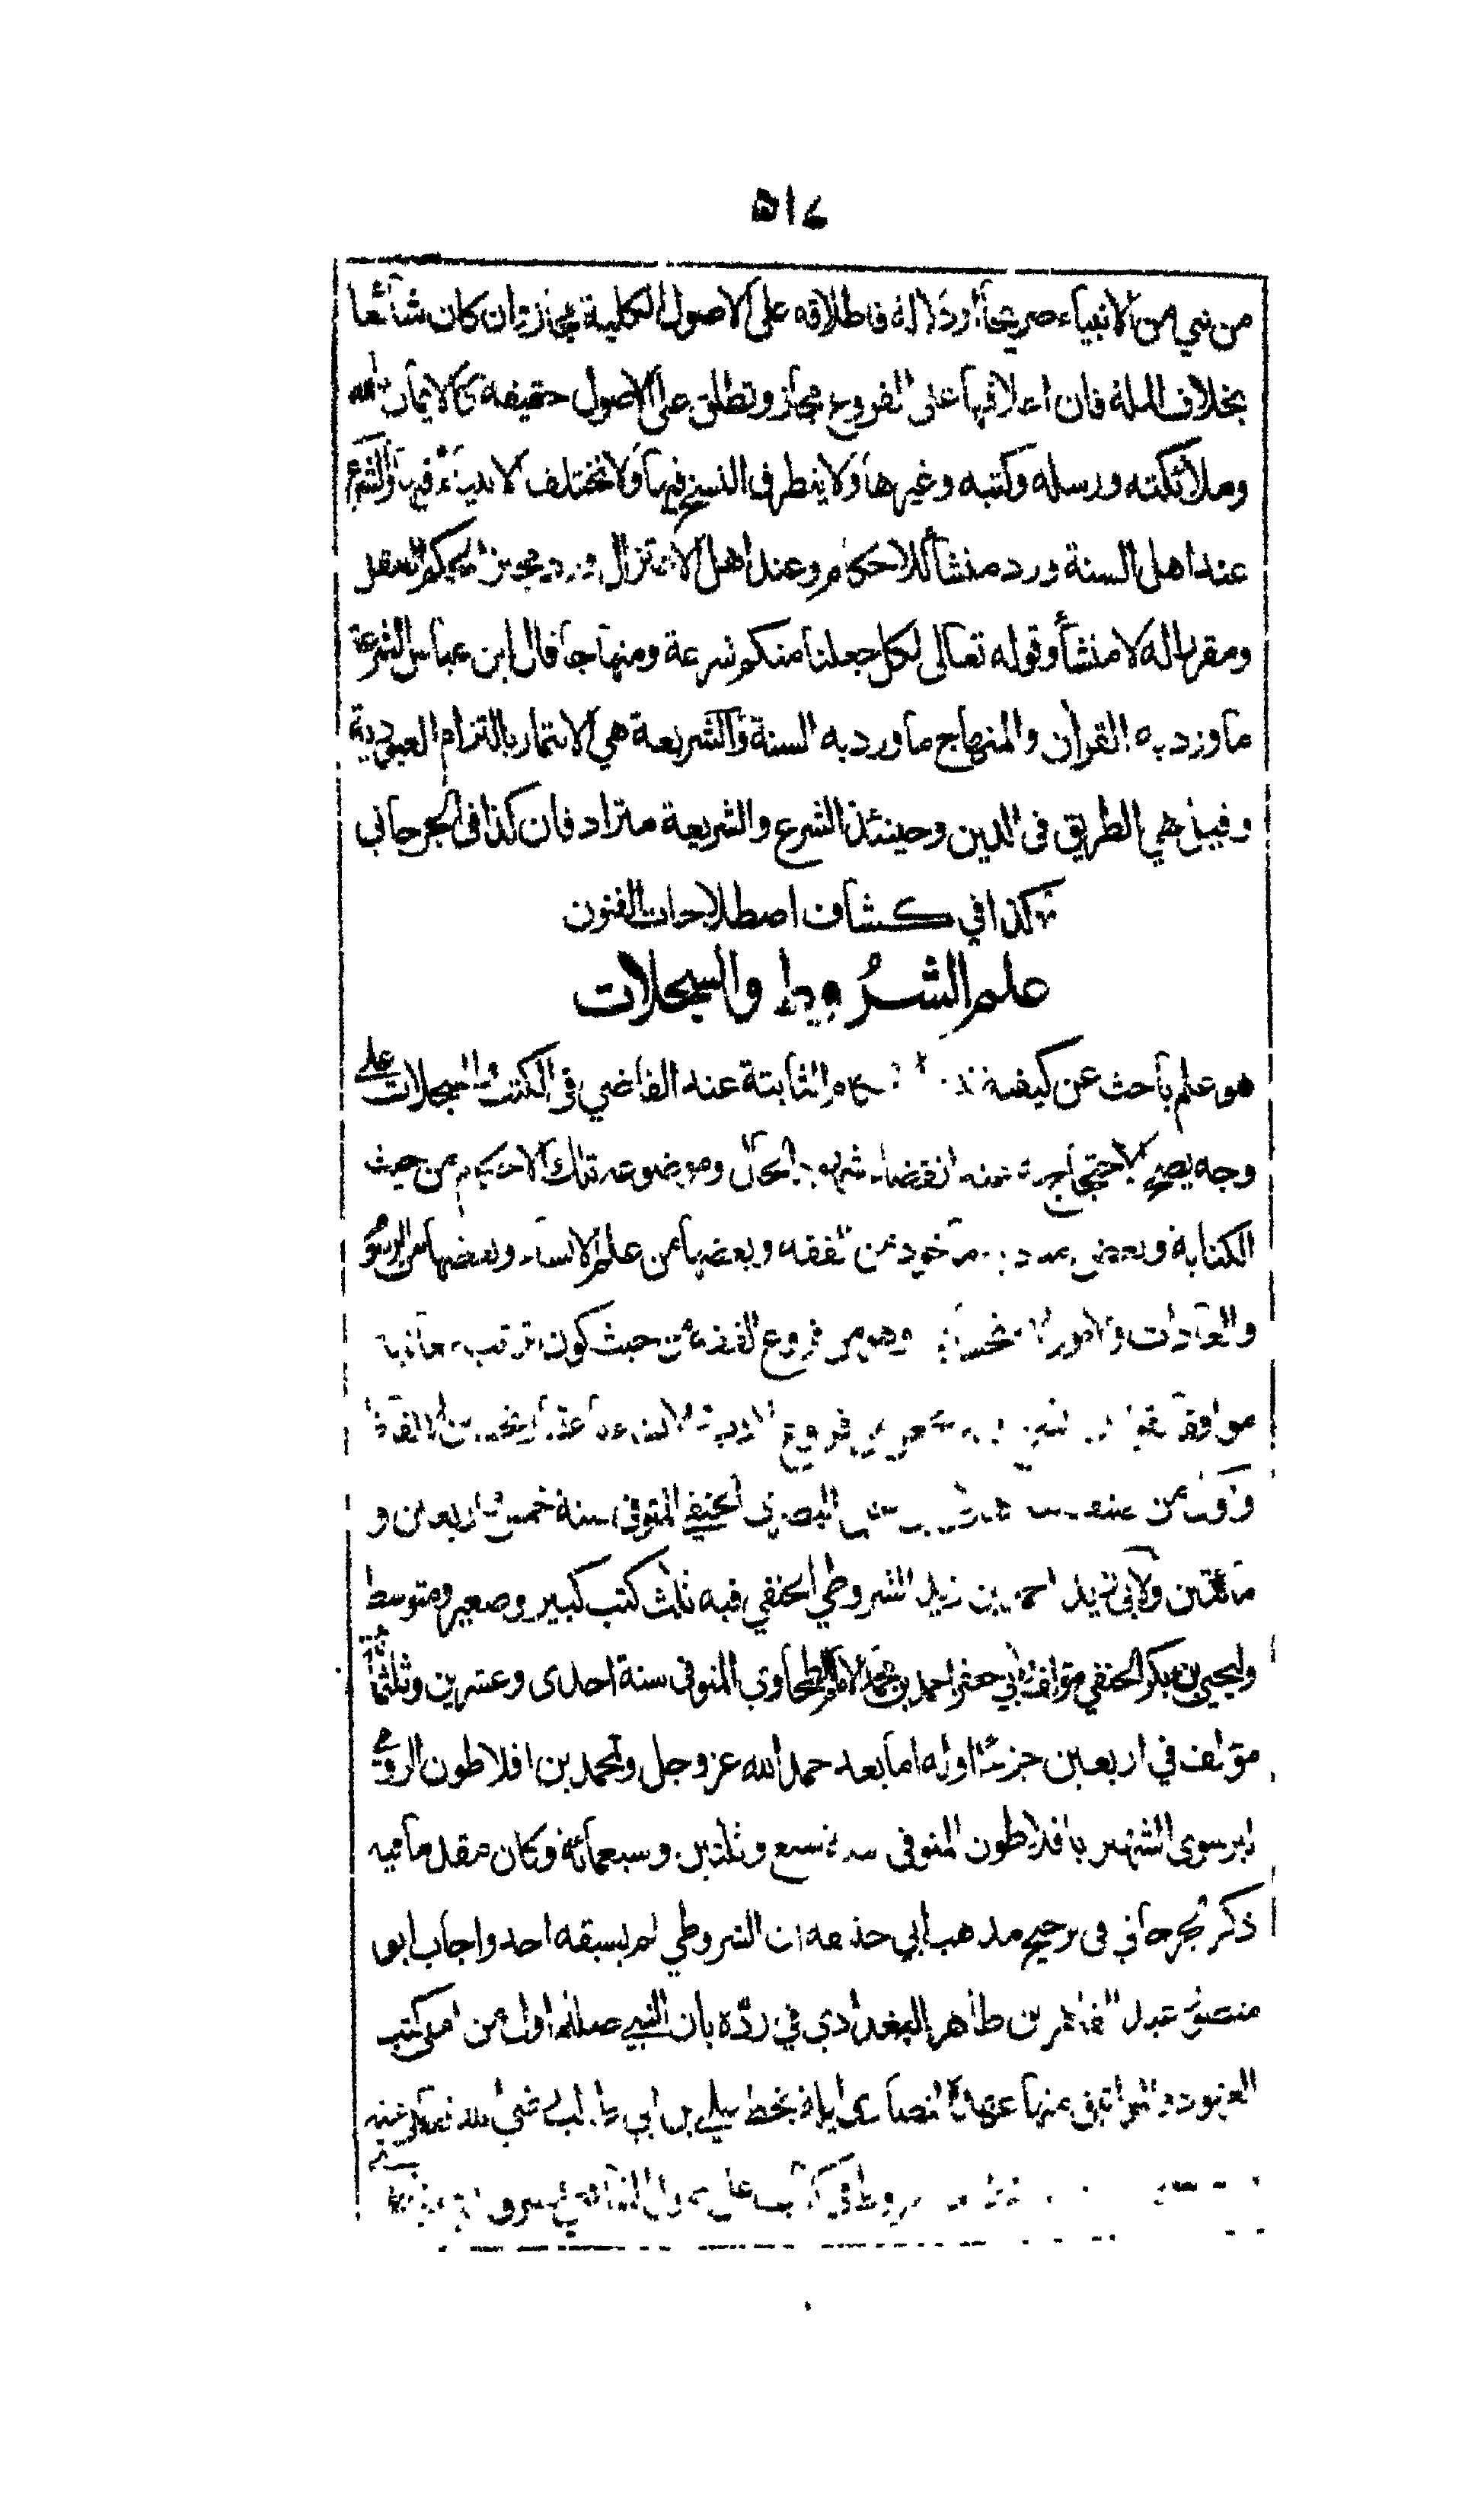 ٥١٧
من نبي من الانبياء صريحا أو دلالة فاطلاقه على الاصول الكلية مجاز وان كان شائعا
بخلاف الملة فان اطلاقها على الفروع مجاز وتطلق على الاصول حقيقة كالايمان بالله
وملائكته ورسله وكتبه وغيرها ولا يتطرق النسخ فيها ولا تختلف الانبياء فيها والشرع
عند اهل السنة ورد منشأ للاحكام وعند اهل الاعتزال ورد مجيزا لحكم العقل
ومقررا له لا منشأ وقوله تعالى لكل جعلنا منكم شرعة ومنهاجا قال ابن عباس الشرعة
ما ورد به القرآن والمنهاج ما ورد به السنة والشريعة هي الائتمار بالتزام العبودية
وقيل هي الطريق في الدين وحينئذ الشرع والشريعة مترادفان كذا في الجرجاني
كذا في كشاف اصطلاحات الفنون
علم الشروط والسجلات
هو علم باحث عن كيفية الثابتة عند القاضي في الكتب والسجلات على
وجه يصح الاحتجاج به عند انقضاء شهود الحال وموضوعه تلك الاحكام من حيث
الكتابة وبعض مأخوذ من الفقه وبعضها من علم الانشاء وبعضها من الرسوم
والعادات والامور الاستحسانية وهو من فروع الفقه من حيث كون ترتيب معانيه
موافقا من فروع الادب
من صنف هلال بن البصري الحنفي المتوفى سنة خمس واربعين و
مائتين ولابي زيد احمد بن زيد الشروطي الحنفي فيه ثلث كتب كبير وصغير ومتوسط
وليحيى بن بكر الحنفي مؤلف ولابي جعفر احمد بن محمد الطحاوي المتوفى سنة احدى وعشرين وثلثمائة
مؤلف في اربعين جزءا اوله اما بعد حمد الله عز وجل ولمحمد بن افلاطون الرومي
البرسوي الشهير بافلاطون المتوفى سنة سبع وثلاثين وسبعمائة وكان مقدما فيه
ذكر الجرجاني في ترجيح مذهب ابي حنيفة ان الشروطي لم يسبقه احد واجاب ابو
منصور عبد القاهر بن طاهر البغدادي في رده بان النبي صللم اول من املى كتب
العهود والمواثيق منها عهد لنصارى ايلة بخط علي بن ابي طالب رضي الله تعالى عنه